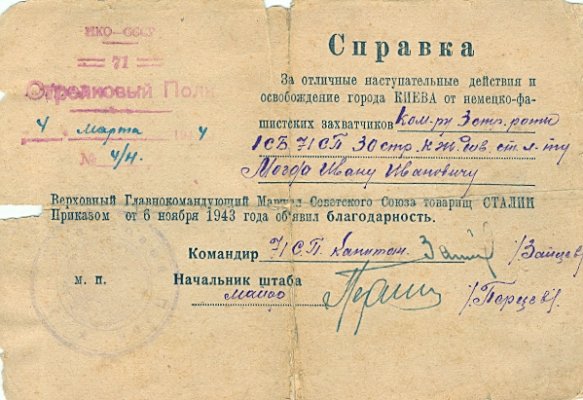 НКО—СССР
71
Стрелковый Полк
4 марта 1944
№ 4/н.
Справка
За отличные наступательные действия и
освобождение города КИЕВА от немецко-фа-
шистских захватчиков Ком-ру 3 стр. роты
1 СБ 71 СП
Ивану Ивановичу
Верховный Главнокомандующий Маршал Советского Союза товарищ СТАЛИН
Приказом от 6 ноября 1943 года об'явил благодарность.
Командир 71 С.П. Капитан /Зайцев/
м. п. Начальник штаба
майор /Перцев/